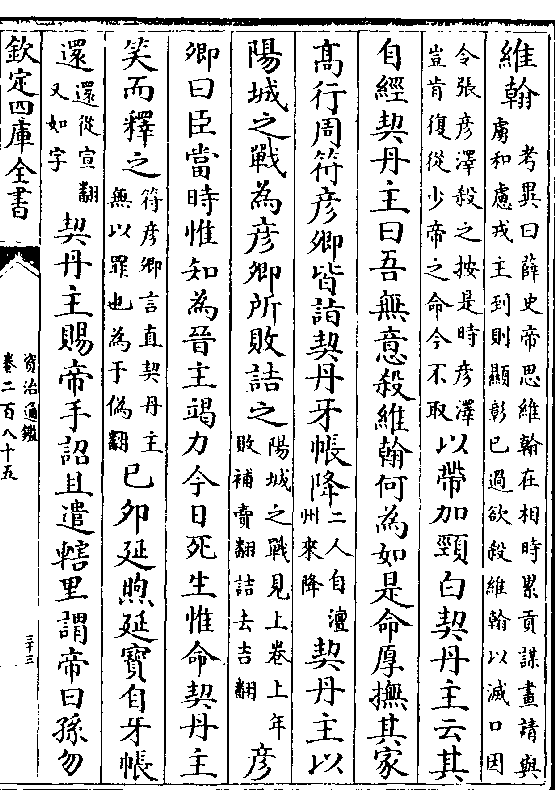 維翰考異曰薛史帝思維翰在相時累貢謀畫請與
虜和慮戎主到則顯彰已過欲殺維翰以滅口因
令張彦澤殺之按是時彦澤
豈肯復從少帝之命今不取以帶加頸白契丹主云其
自經契丹主曰吾無意殺維翰何為如是命厚撫其家
髙行周符彦卿皆詣契丹牙帳降二人自澶
州來降契丹主以
陽城之戰為彦卿所敗詰之陽城之戰見上卷上年
敗補賣翻詰去吉翻彦
卿曰臣當時惟知為晉主竭力今日死生惟命契丹主
笑而釋之符彦卿言直契丹主
無以罪也為于偽翻已卯延煦延寳自牙帳
還還從宣翻
又如字契丹主賜帝手詔且遣轄里謂帝曰孫勿
欽定四庫全書
資治通鑑
卷二百八十五
三十三